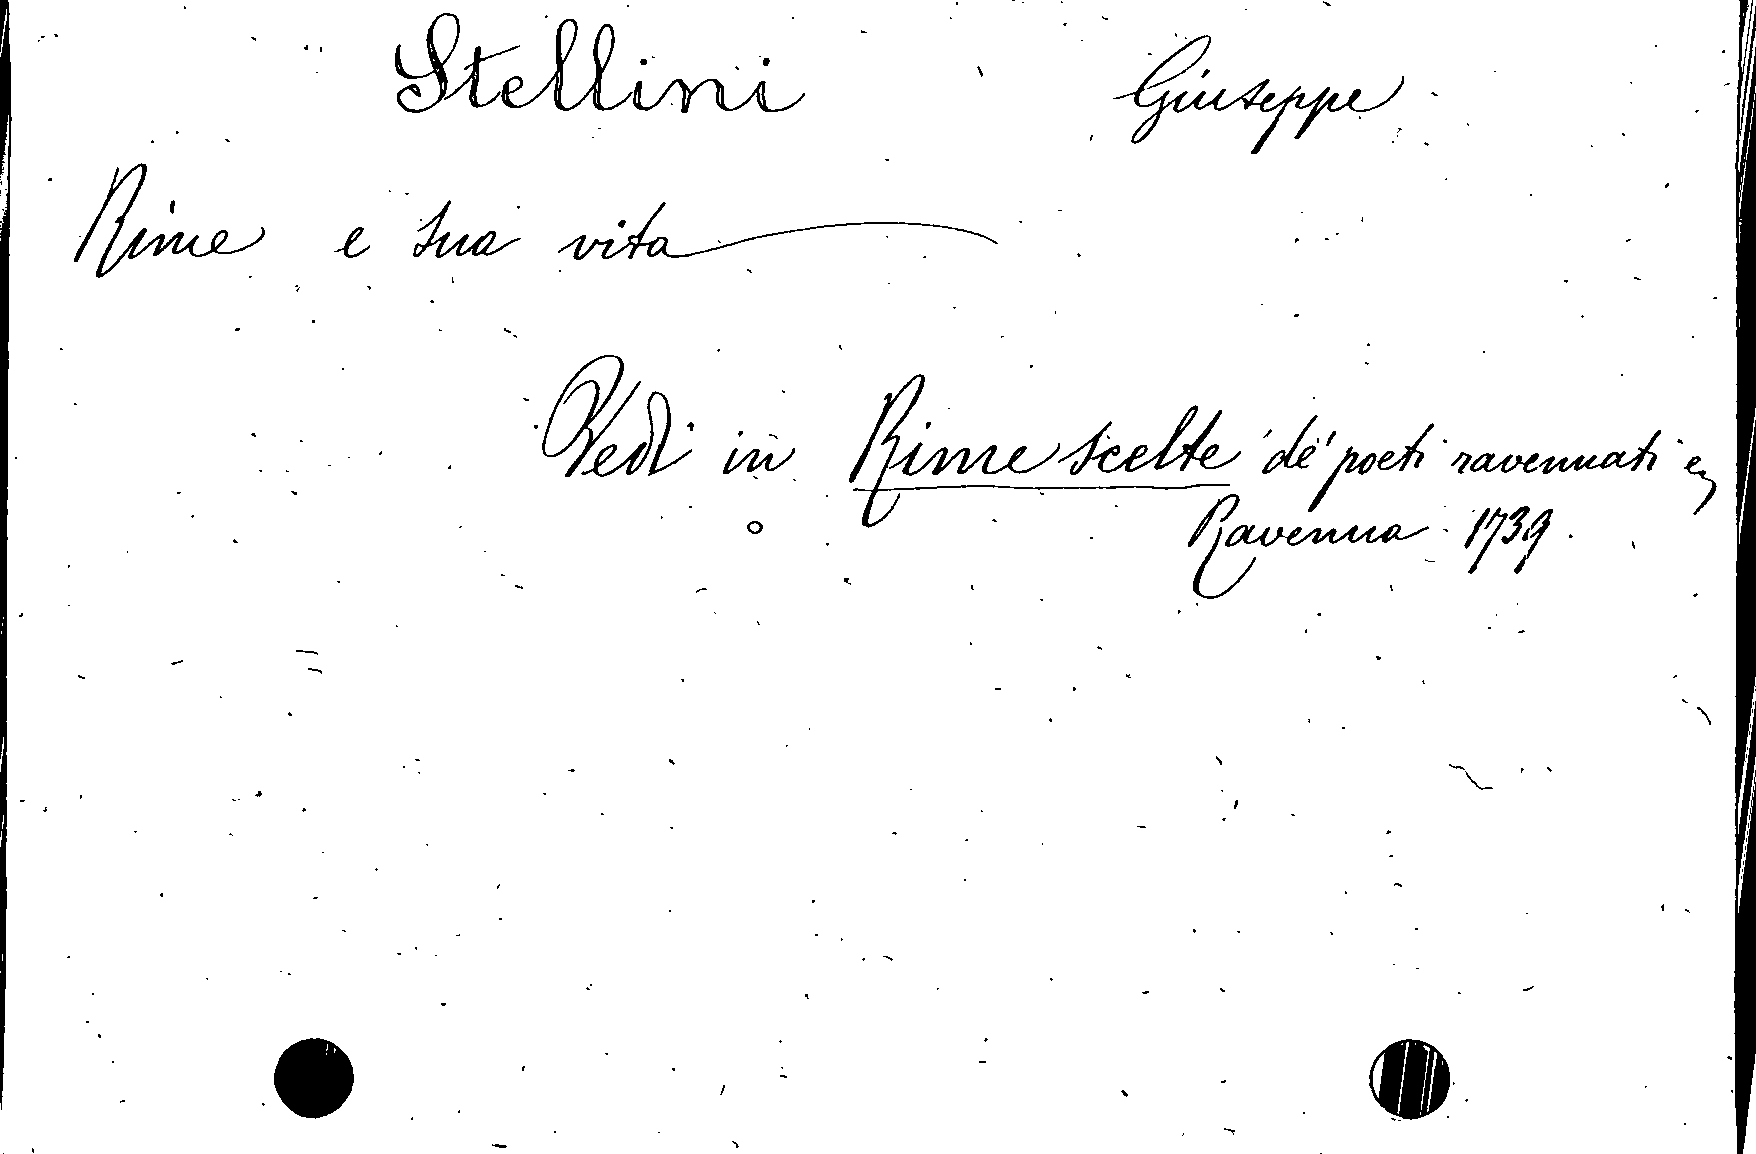 Stellini Giuseppe
Rime e sua vita
Vedi in Rime scelte de' poeti ravennati e
Ravenna 1739.